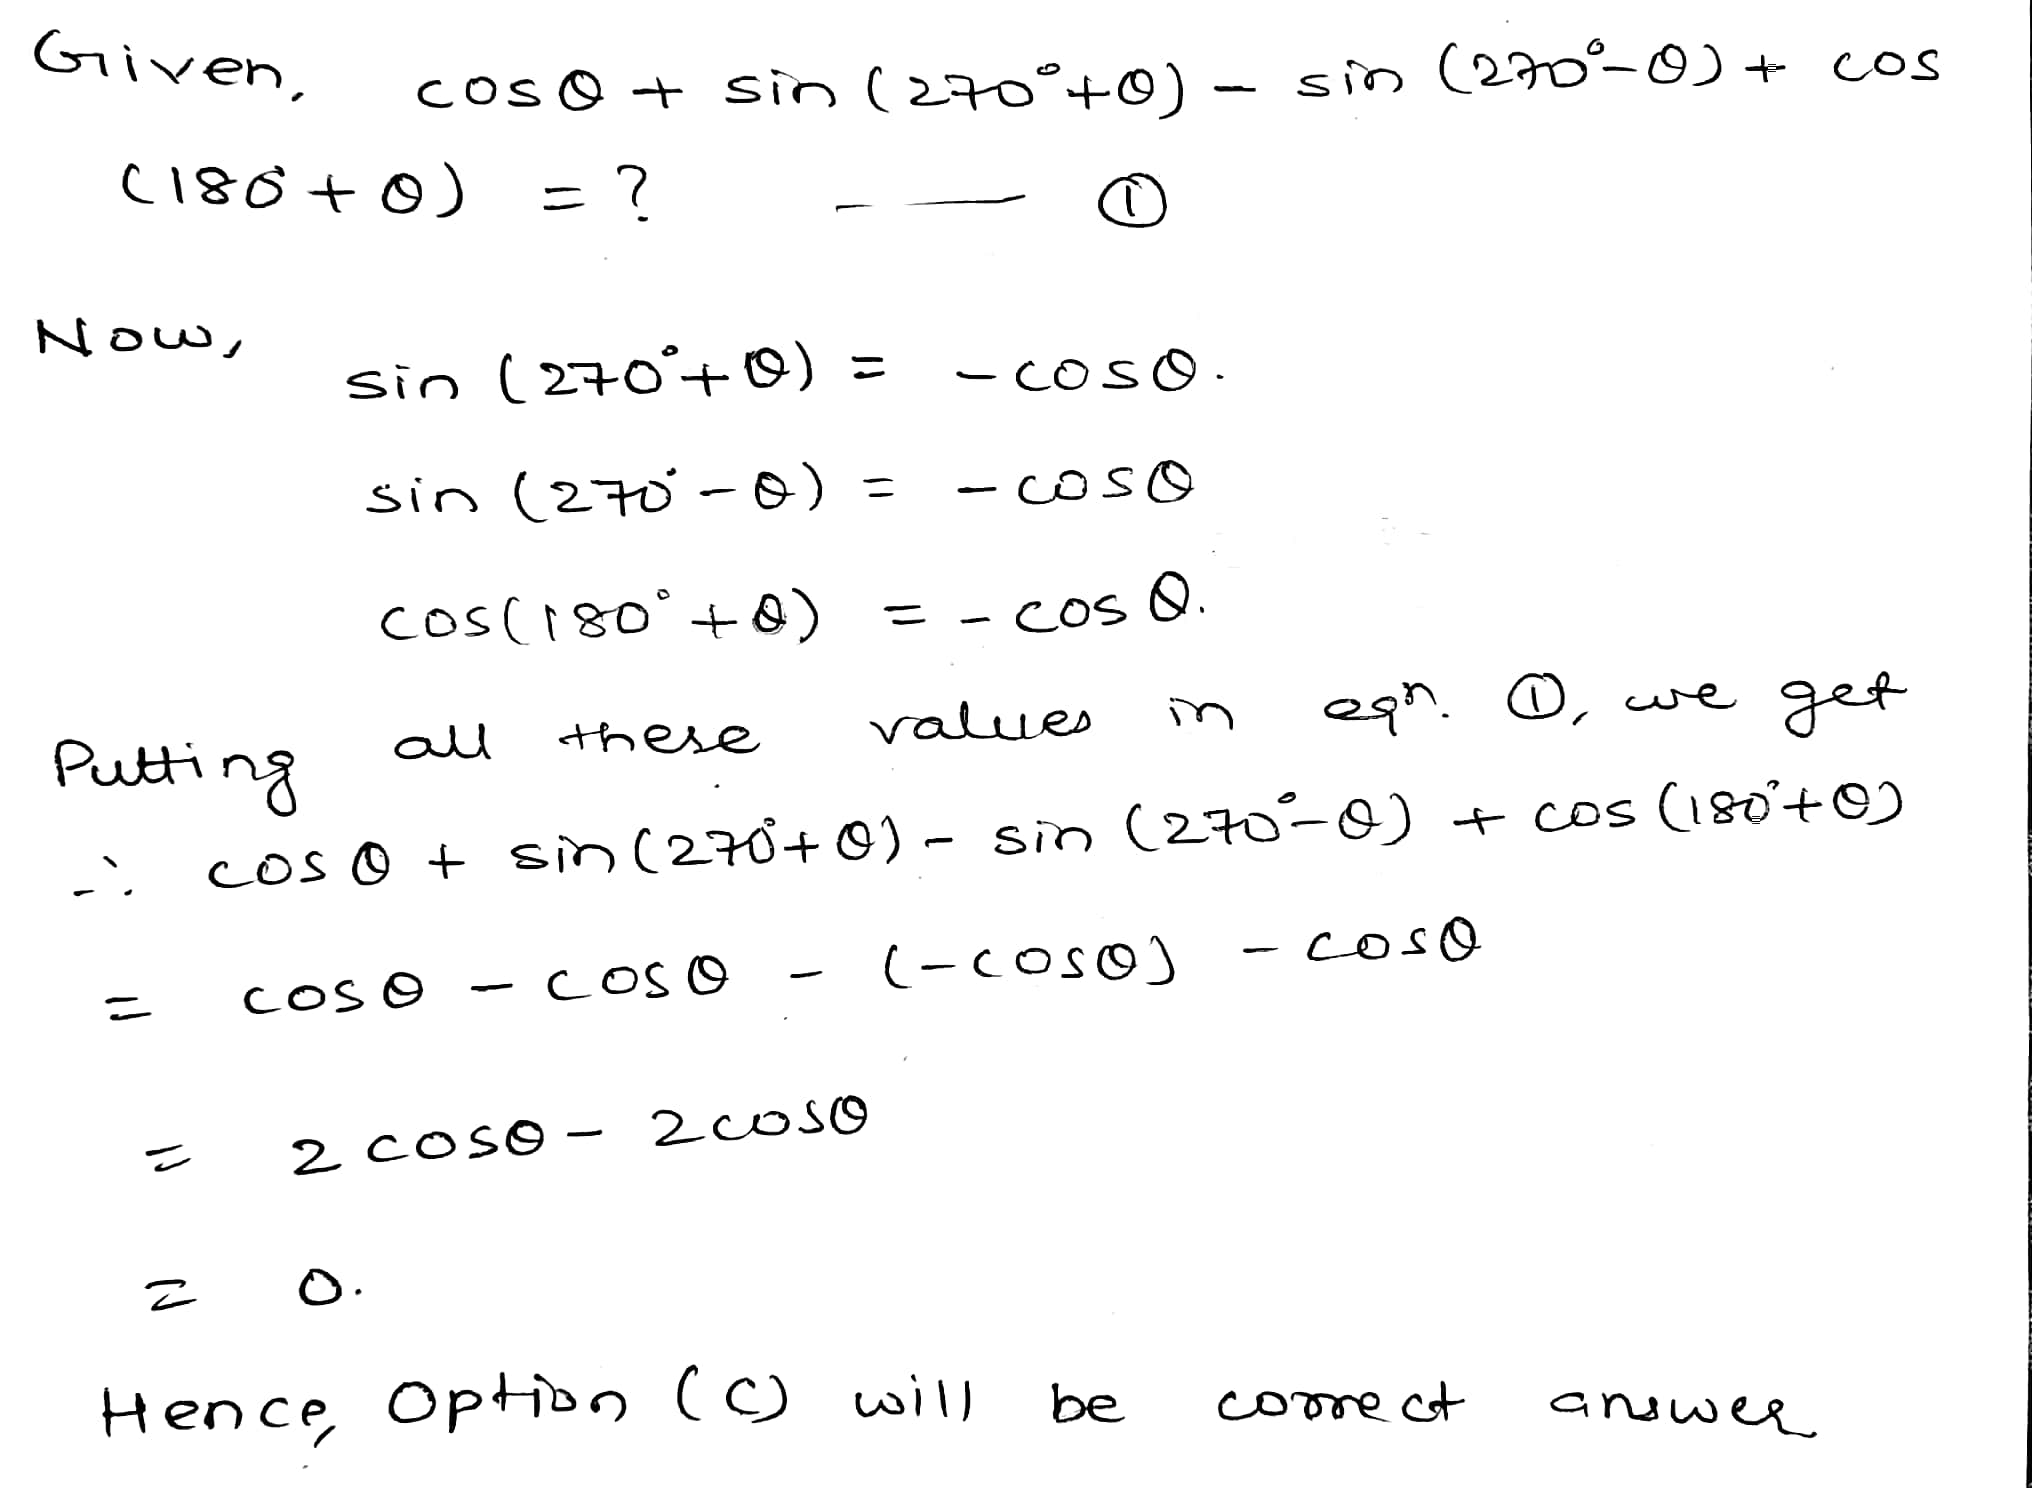 Given, cosθ + sin (270°+θ) - sin (270°-θ) + cos
(180°+θ) = ? -- — ①
Now,
sin (270°+θ) = -cosθ.
sin (270°-θ) = -cosθ
cos(180°+θ) = -cosθ.
Putting all these values in eqn. ①, we get
∴ cosθ + sin(270°+θ) - sin (270°-θ) + cos (180°+θ)
= cosθ - cosθ - (-cosθ) - cosθ
= 2 cosθ - 2cosθ
= 0.
Hence, Option (C) will be correct answer